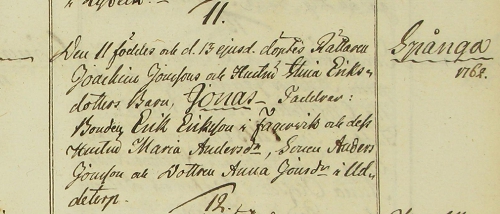 11.
Den 11 föddes och d. 13 ejusd. döptes Rättaren
Joachim Jönsons och Hustru Stina Eriks-
dotters Barn, Jonas – Faddrar:
Bonden Erik Erikson i Fagerwik och dess
Hustru Maria Andersdr, Sonen Anders
Jönson och Dottren Anna Jönsdr i Ud-
detorp.
12.
Spånga
1762.